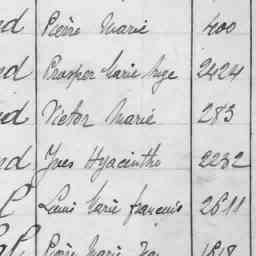 nd Pierre Marie 400
nd Prosper Marie Ange 2424
nd Victor Marie 283
nd Yves Hyacinthe 2232
l Louis Marie François 2611
Pierre Marie 1818